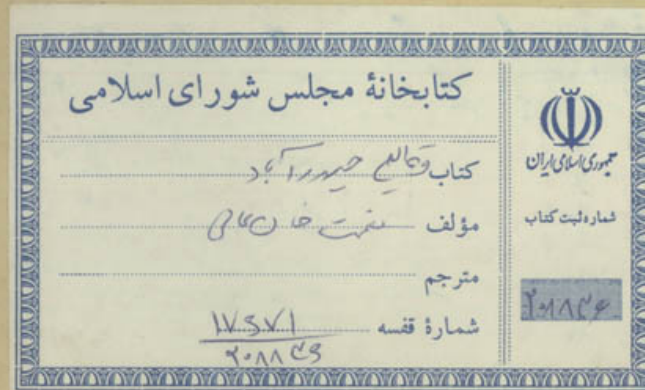 کتابخانهٔ مجلس شورای اسلامی
کتاب وقایع حیدرآباد
مؤلف نعمت خان عالی
مترجم
شمارهٔ قفسه ۱۷۶۷۱
۲۰۸۸۳۶
جمهوری اسلامی ایران
شماره ثبت کتاب
۲۰۸۸۳۶